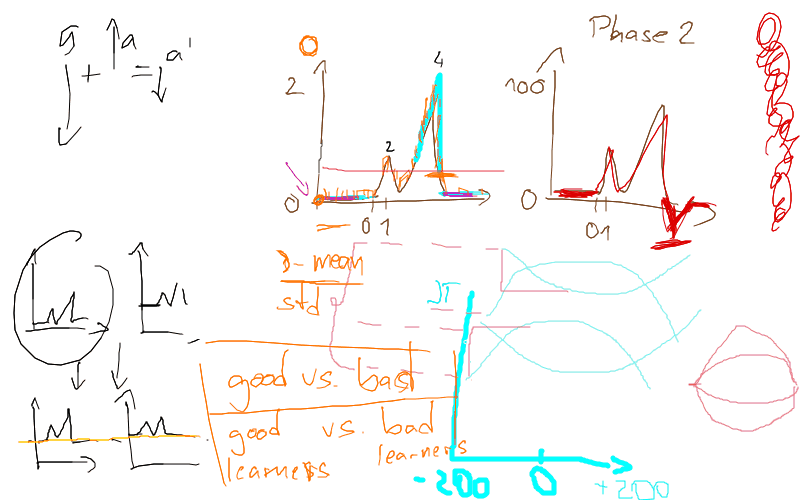 g + a = a'
Phase 2
4
2
2
0
0 1
100
0
01
x - mean
std
JT
good vs. bad
good vs. bad
learners learners
-200 0 +200